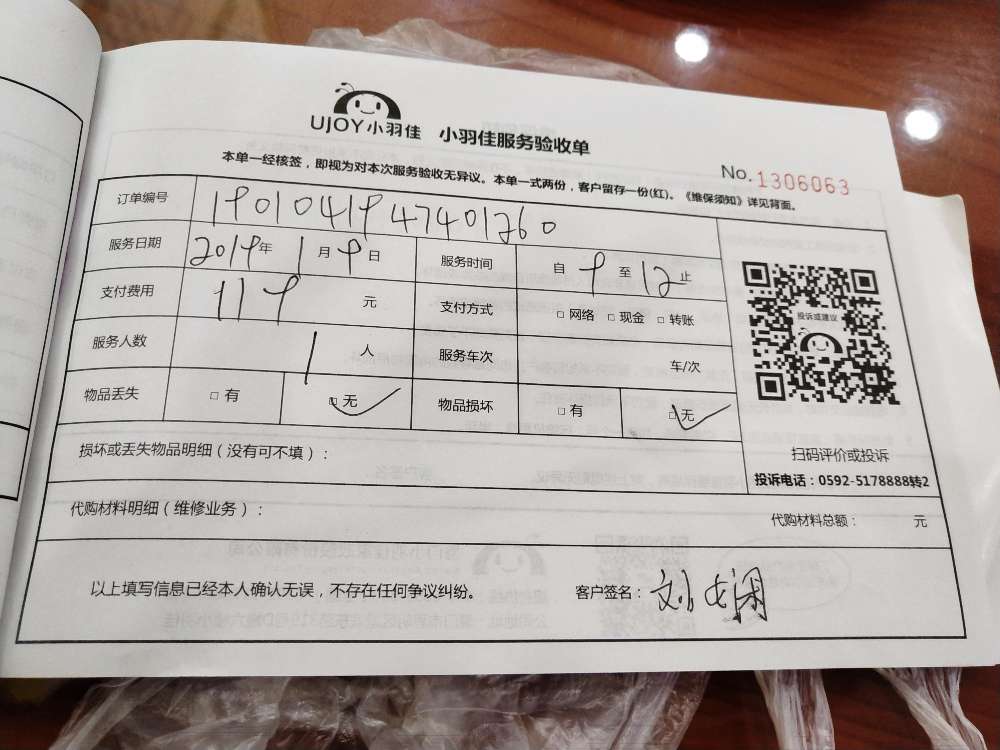 UJOY小羽佳 小羽佳服务验收单
No.1306063
本单一经核签，即视为对本次服务验收无异议。本单一式两份，客户留存一份(红)。《维保须知》详见背面。
订单编号 1901041947401260
服务日期 2019年 1月 9日 服务时间 自 9 至 12 止
支付费用 119 元 支付方式 □ 网络 □ 现金 □ 转账
服务人数 1 人 服务车次 车/次
物品丢失 □ 有 □ 无 ✓ 物品损坏 □ 有 □ 无 ✓
投诉或建议
扫码评价或投诉
投诉电话：0592-5178888转2
损坏或丢失物品明细（没有可不填）：
代购材料明细（维修业务）： 代购材料总额： 元
以上填写信息已经本人确认无误，不存在任何争议纠纷。 客户签名：刘